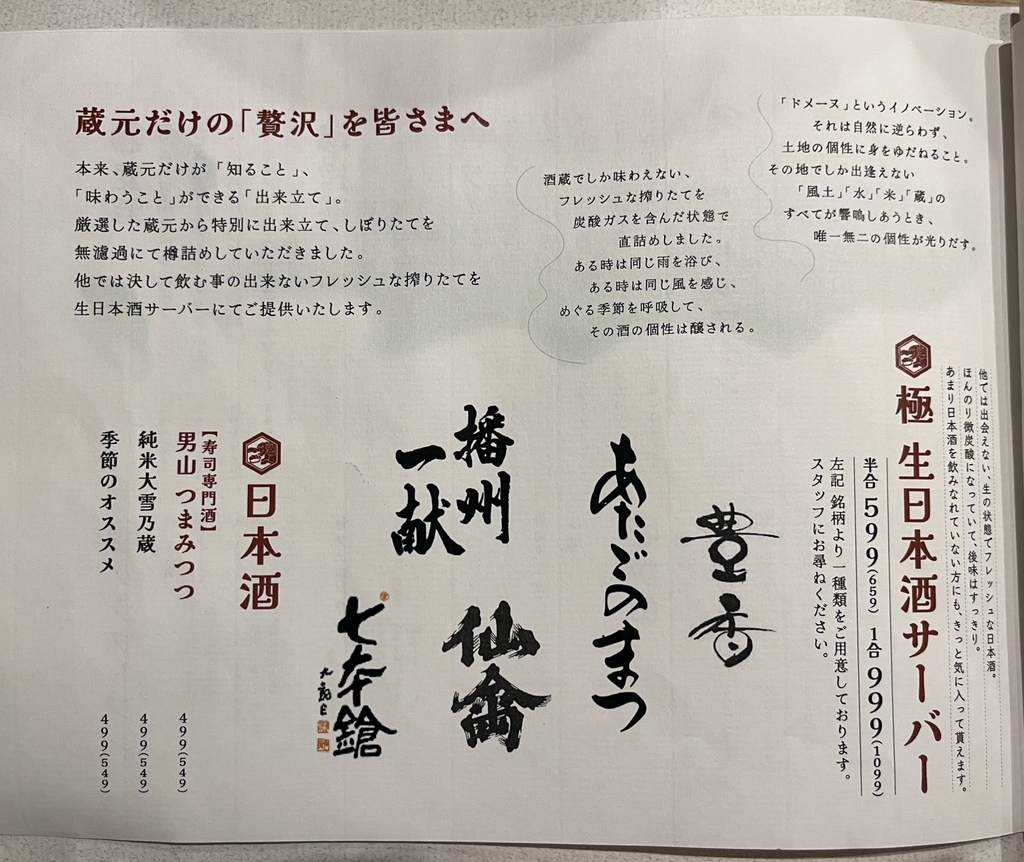 蔵元だけの「贅沢」を皆さまへ
本来、蔵元だけが「知ること」、
「味わうこと」ができる「出来立て」。
厳選した蔵元から特別に出来立て、しぼりたてを
無濾過にて樽詰めしていただきました。
他では決して飲む事の出来ないフレッシュな搾りたてを
生日本酒サーバーにてご提供いたします。
酒蔵でしか味わえない、
フレッシュな搾りたてを
炭酸ガスを含んだ状態で
直詰めしました。
ある時は同じ雨を浴び、
ある時は同じ風を感じ、
めぐる季節を呼吸して、
その酒の個性は醸される。
「ドメーヌ」というイノベーション。
それは自然に逆らわず、
土地の個性に身をゆだねること。
その地でしか出逢えない
「風土」「水」「米」「蔵」の
すべてが響鳴しあうとき、
唯一無二の個性が光りだす。
他では出会えない、生の状態でフレッシュな日本酒。
ほんのり微炭酸になっていて、後味はすっきり。
あまり日本酒を飲みなれていない方にも、きっと気に入って貰えます。
極 生日本酒サーバー
半合 599(659) 1合 999(1099)
左記 銘柄より一種類をご用意しております。
スタッフにお尋ねください。
豊香
あたごのまつ
播州
一献
仙禽
七本鎗
日本酒
【寿司専門酒】
男山 つまみつつ 499(549)
純米大雪乃蔵 499(549)
季節のオススメ 499(549)